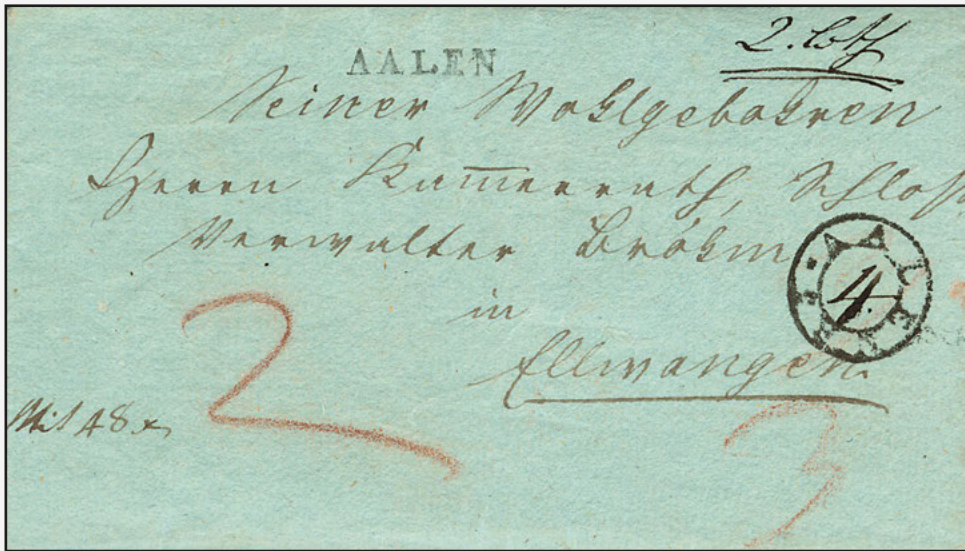 AALEN
2. Loth
Seiner Wohlgebohren
Herrn Kam̅errath, Schloß
Verwalter Bröhm
in
Ellwangen.
AALEN
4.
Mit 48 x
2
3